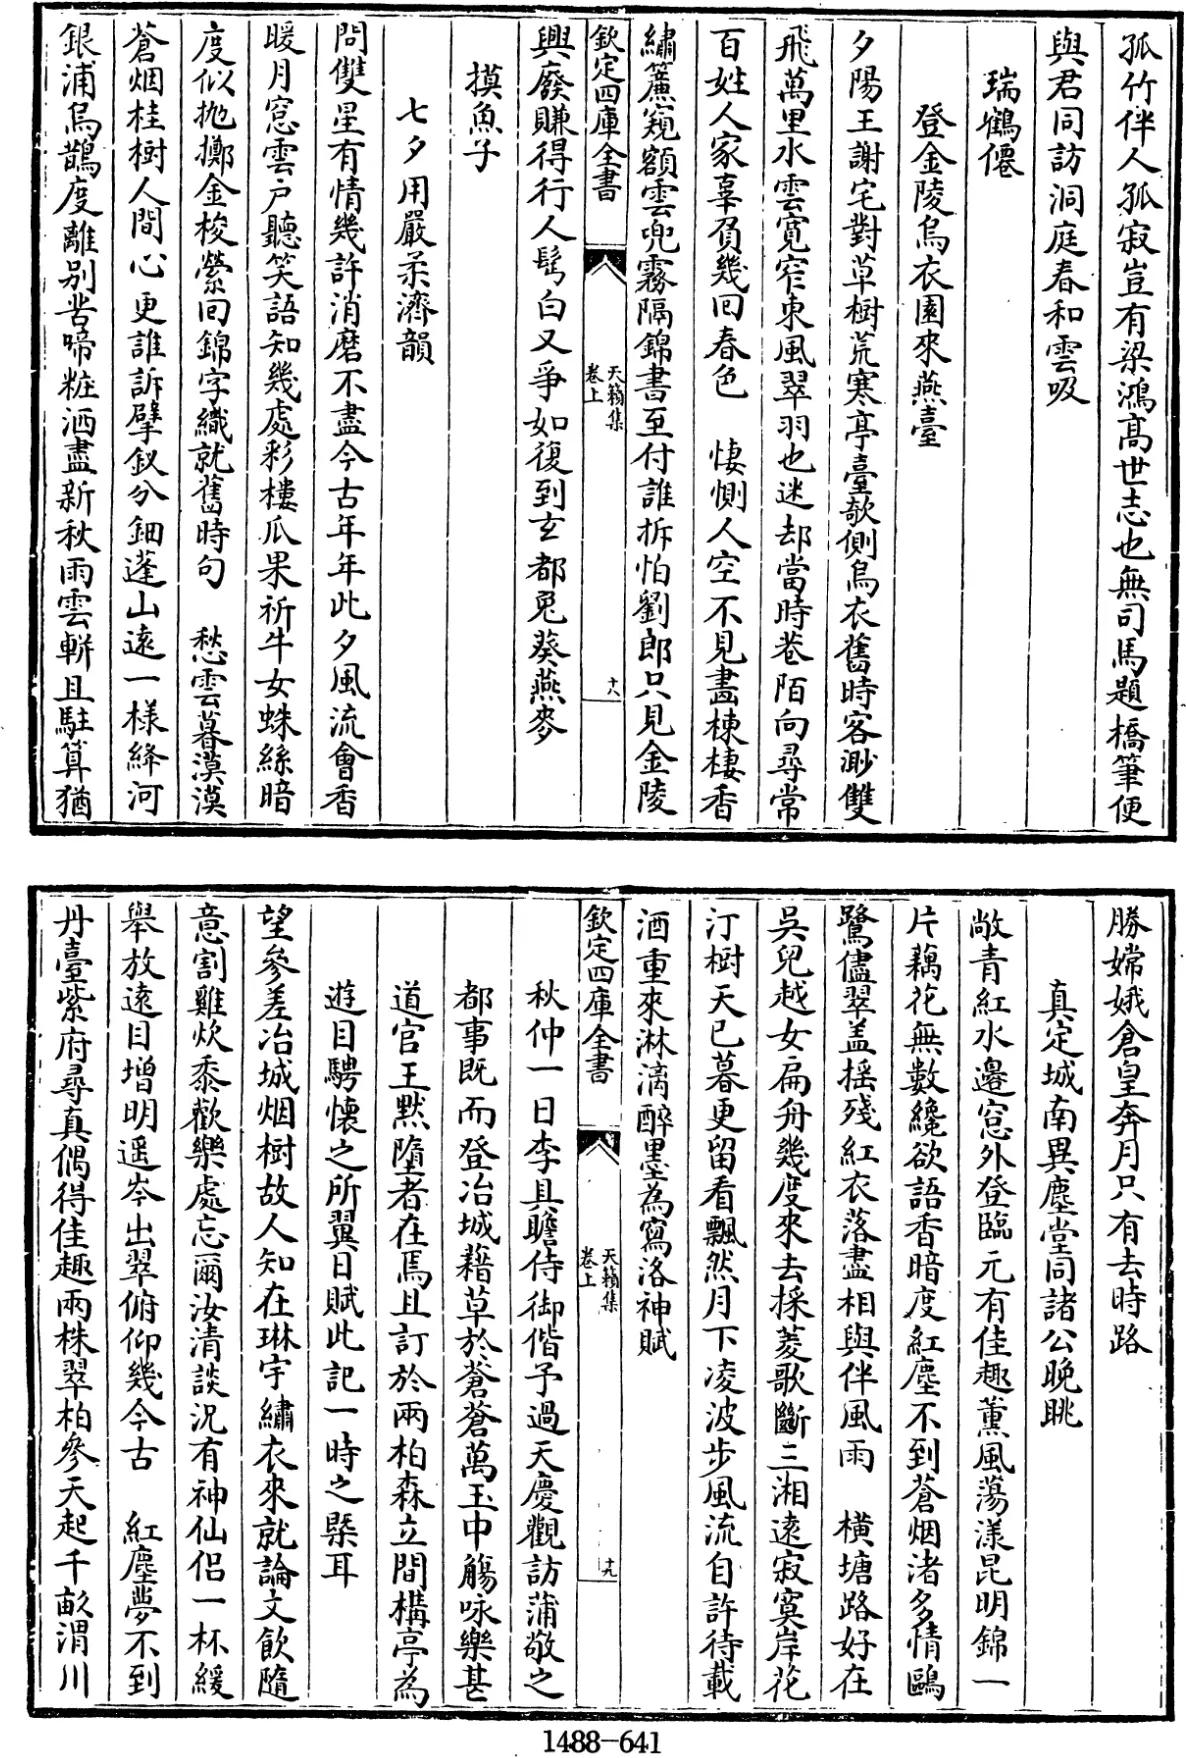 孤竹伴人孤寂豈有梁鴻髙世志也無司馬題橋筆便
與君同訪洞庭春和雲吸
瑞鶴僊
登金陵烏衣園來燕臺
夕陽王謝宅對草樹荒寒亭臺欹側烏衣舊時客渺雙
飛萬里水雲寛窄東風翠羽也迷却當時巷陌向尋常
百姓人家辜負幾囘春色　悽惻人空不見畵棟棲香
繡簾窺額雲兜霧隔錦書至付誰拆怕劉郎只見金陵
欽定四庫全書
天籟集
卷上
十八
興廢賺得行人髩白又爭如復到玄都兎葵燕麥
摸魚子
七夕用嚴柔濟韻
問雙星有情幾許消磨不盡今古年年此夕風流會香
暖月窓雲戸聽笑語知幾處彩樓瓜果祈牛女蛛絲暗
度似抛擲金梭縈回錦字織就舊時句　愁雲暮漠漠
蒼烟桂樹人間心更誰訴擘釵分鈿蓬山遠一樣絳河
銀浦烏鵲度離别苦啼粧洒盡新秋雨雲軿且駐算猶
勝嫦娥倉皇奔月只有去時路
真定城南異塵堂同諸公晚眺
敞青紅水邊窓外登臨元有佳趣薰風蕩漾昆明錦一
片藕花無數纔欲語香暗度紅塵不到蒼烟渚多情鷗
鷺儘翠盖揺殘紅衣落盡相與伴風雨　横塘路好在
吳兒越女扁舟幾度來去採菱歌斷三湘遠寂寞岸花
汀樹天已暮更留看飄然月下凌波步風流自許待載
酒重來淋漓醉墨為寫洛神賦
欽定四庫全書
天籟集
卷上
十九
秋仲一日李具瞻侍御偕予過天慶觀訪蒲敬之
都事既而登冶城藉草於蒼蒼萬玉中觴咏樂甚
道官王黙隨者在焉且訂於兩柏森立間構亭為
遊目騁懷之所翼日賦此記一時之槩耳
望參差冶城烟樹故人知在琳宇繡衣來就論文飲隨
意割雞炊黍歡樂處忘爾汝清談況有神仙侣一杯緩
舉放遠目增明遥岑出翠俯仰幾今古　紅塵夢不到
丹臺紫府尋真偶得佳趣兩株翠柏參天起千畝渭川
1488-641